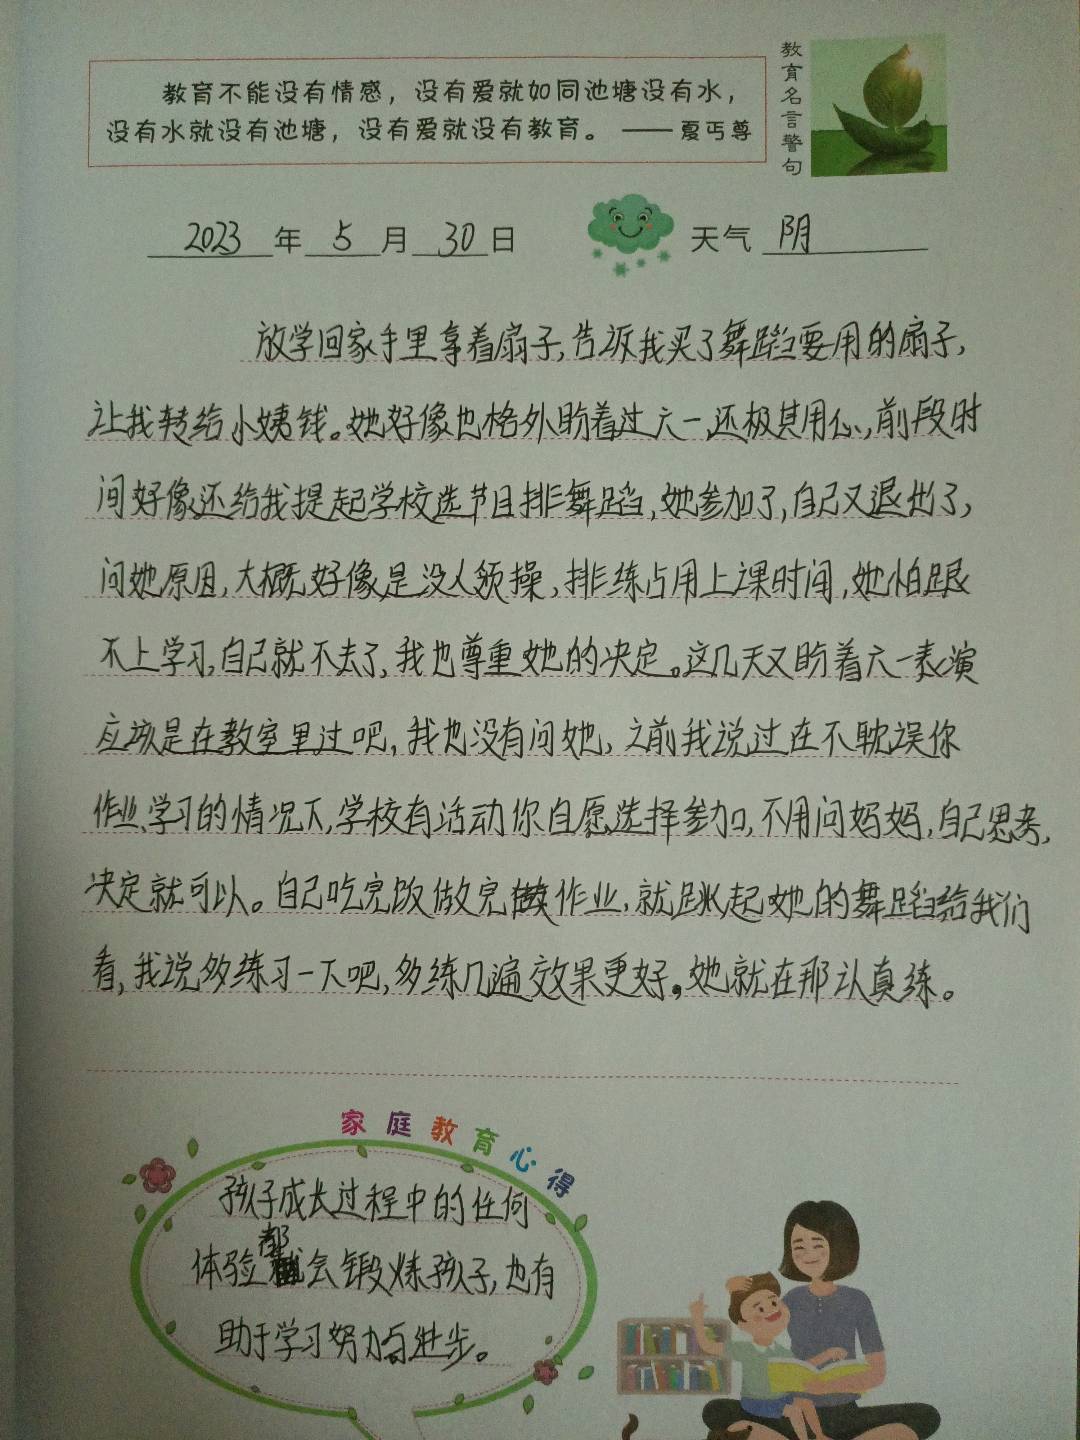 教育名言警句
教育不能没有情感，没有爱就如同池塘没有水，
没有水就没有池塘，没有爱就没有教育。 ——夏丏尊
2023年5月30日 天气 阴
放学回家手里拿着扇子，告诉我买了舞蹈要用的扇子，
让我转给小姨钱。她好像也格外盼着过六一，还极其用心，前段时
间好像还给我提起学校选节目排舞蹈，她参加了，自己又退出了，
问她原因，大概好像是没人领操，排练占用上课时间，她怕跟
不上学习，自己就不去了，我也尊重她的决定。这几天又盼着六一表演
应该是在教室里过吧，我也没有问她，之前我说过在不耽误你
作业、学习的情况下，学校有活动你自愿选择参加，不用问妈妈，自己思考，
决定就可以。自己吃完饭做完作业，就跳起她的舞蹈给我们
看，我说多练习一下吧，多练几遍效果更好。她就在那认真练。
家庭教育心得
孩子成长过程中的任何
体验都会锻炼孩子，也有
助于学习努力与进步。